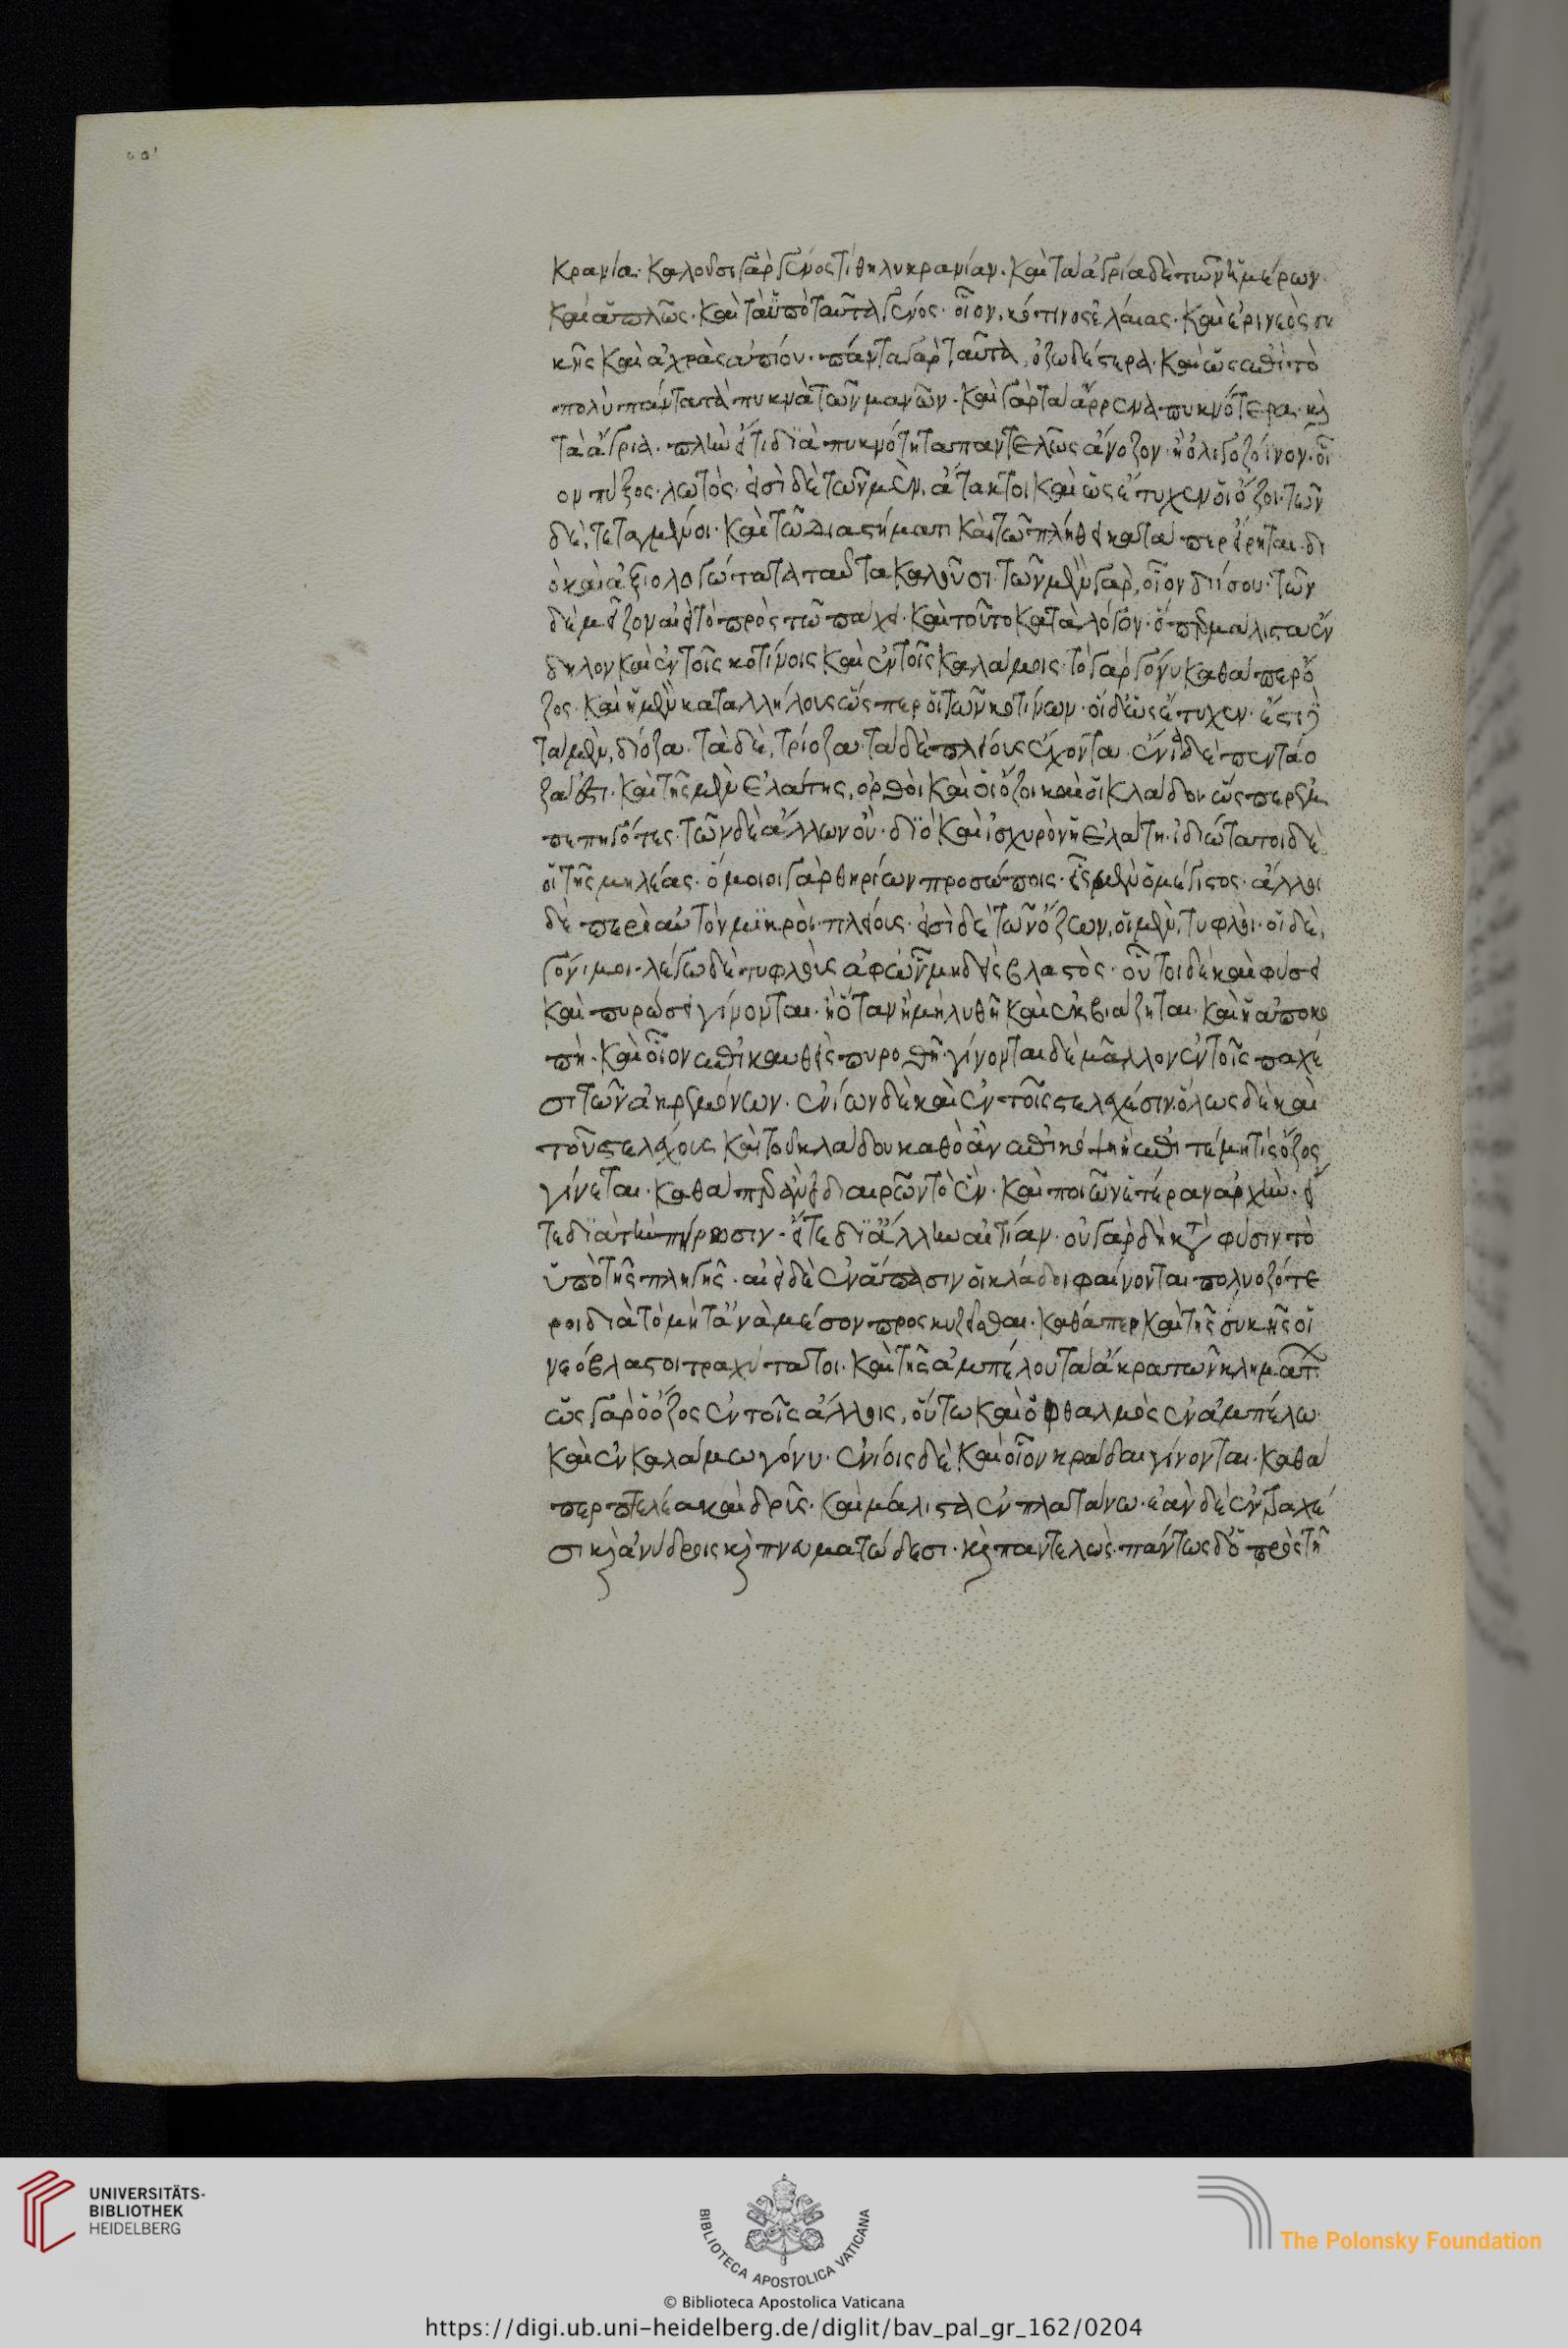 κρανία. καλοῦσι γὰρ γένος τι θηλυκρανίαν. καὶ τὰ ἄγρια δὲ τῶν ἡμέρων.
καὶ ἁπλῶς. καὶ τὰ ὑπὸ ταυτὰ γένος. οἷον, κότινος ἐλάας. καὶ ἐρινεὸς συ
κῆς καὶ ἀχρὰς ἀπίου. πάντα γὰρ ταῦτα, ὀζωδέστερα. καὶ ὡς ἐπὶ τὸ
πολὺ πάντα τὰ πυκνὰ τῶν μανῶν. καὶ γὰρ τὰ ἄρρενα πυκνότερα. κὶ
τὰ ἄγρια. πλὴν εἴ τι διὰ πυκνότητα παντελῶς ἄνοζον. ἢ ὀλιγόζοινον. οἷ
ον πύξος. λωτός. εἰσὶ δὲ τῶν μὲν, ἄτακτοι καὶ ὡς ἔτυχεν οἱ ὄζοι. τῶν
δὲ, τεταγμένοι. καὶ τῶ διαστήματι καὶ τῶ πλήθει καθάπερ εἴρηται. δι
ὸ καὶ ἀξιολογώτατα ταῦτα καλοῦσι. τῶν μὲν γὰρ, οἷον δι ίσου. τῶν
δὲ μεῖζον αἰεὶ τὸ πρὸς τῶ πάχει. καὶ τοῦτο κατὰ λόγον. ὅπερ μάλιστα ἔν
δηλον καὶ ἐν τοῖς κοτίνοις καὶ ἐν τοῖς καλάμοις. τὸ γὰρ γόνυ καθάπερ ὄ
ζος. καὶ οἱ μὲν καταλλήλους ὥσπερ οἱ τῶν κοτίνων. οἱ δὲ ὡς ἔτυχεν. ἔστι δὲ
τὰ μὲν, δίοζα. τὰ δὲ, τρίοζα. τὰ δὲ πλείους ἔχοντα. ἔνια δὲ πεντάο
ζά ἐστι. καὶ τῆς μὲν ἐλάτης, ὀρθοὶ καὶ οἱ ὄζοι καὶ οἱ κλάδοι ὥσπερ ἐμ
πεπηγότες. τῶν δὲ ἄλλων οὔ. διὸ καὶ ἰσχυρὸν ἡ ἐλάτη. ἰδιώτατοι δὲ
οἱ τῆς μηλέας. ὅμοιοι γὰρ θηρίων προσώποις. εἷς μὲν ὁ μέγιστος. ἄλλοι
δὲ περὶ αὐτὸν μικροὶ πλείους. εἰσὶ δὲ τῶν ὄζων, οἱ μὲν, τυφλοί. οἱ δὲ,
γόνιμοι. λέγω δὲ τυφλοὺς ἀφ ὧν μηδεὶς βλαστός. οὗτοι δὲ καὶ φύσει
καὶ πυρώσει γίνονται. ἢ ὅταν ἢ μὴ λυθῆ καὶ ἐκβιάζηται. καὶ ἢ ἀποκο
πῆ. καὶ οἷον ἐπικαυθεὶς πυρωθῆ. γίνονται δὲ μᾶλλον ἐν τοῖς παχέ
σι τῶν ἀκρεμόνων. ἐνίων δὲ καὶ ἐν τοῖς στελέχεσιν. ὅλως δὲ καὶ
τοῦ στελέχους καὶ τοῦ κλάδου καθὸ ἂν ἐπικόψη ἢ ἐπιτέμη τὶς ὄζος
γίνεται. καθαπερανεὶ διαιρῶν τὸ ἕν. καὶ ποιῶν ἑτέραν ἀρχήν. εἴ
τε διὰ τὴν πήρωσιν. εἴτε δι ἄλλην αἰτίαν. οὐ γὰρ δὴ κατὰ φύσιν τὸ
ὑπὸ τῆς πληγῆς. αἰεὶ δὲ ἐν ἅπασιν οἱ κλάδοι φαίνονται πολυοζότε
ροι διὰ τὸ μήπω τἀνὰ μέσον προσηυξῆσθαι. καθάπερ καὶ τῆς συκῆς οἱ
νεόβλαστοι τραχύτατοι. καὶ τῆς ἀμπέλου τὰ ἄκρα τῶν κλημάτων.
ὡς γὰρ ὁ ὄζος ἐν τοῖς ἄλλοις, οὕτω καὶ ὀφθαλμὸς ἐν ἀμπέλω.
καὶ ἐν καλάμω γόνυ. ἐνίοις δὲ καὶ οἷον κράδαι γίνονται. καθά
περ πτελέα καὶ δρυῒ. καὶ μάλιστα ἐν πλατάνω. ἐὰν δὲ ἐν τραχέ
σι κὶ ἀνύδροις κὶ πνευματώδεσι. κὶ παντελῶς. πάντως δὲ πρὸς τῆ
UNIVERSITÄTS-
BIBLIOTHEK
HEIDELBERG
BIBLIOTECA APOSTOLICA VATICANA
The Polonsky Foundation
© Biblioteca Apostolica Vaticana
https://digi.ub.uni-heidelberg.de/diglit/bav_pal_gr_162/0204